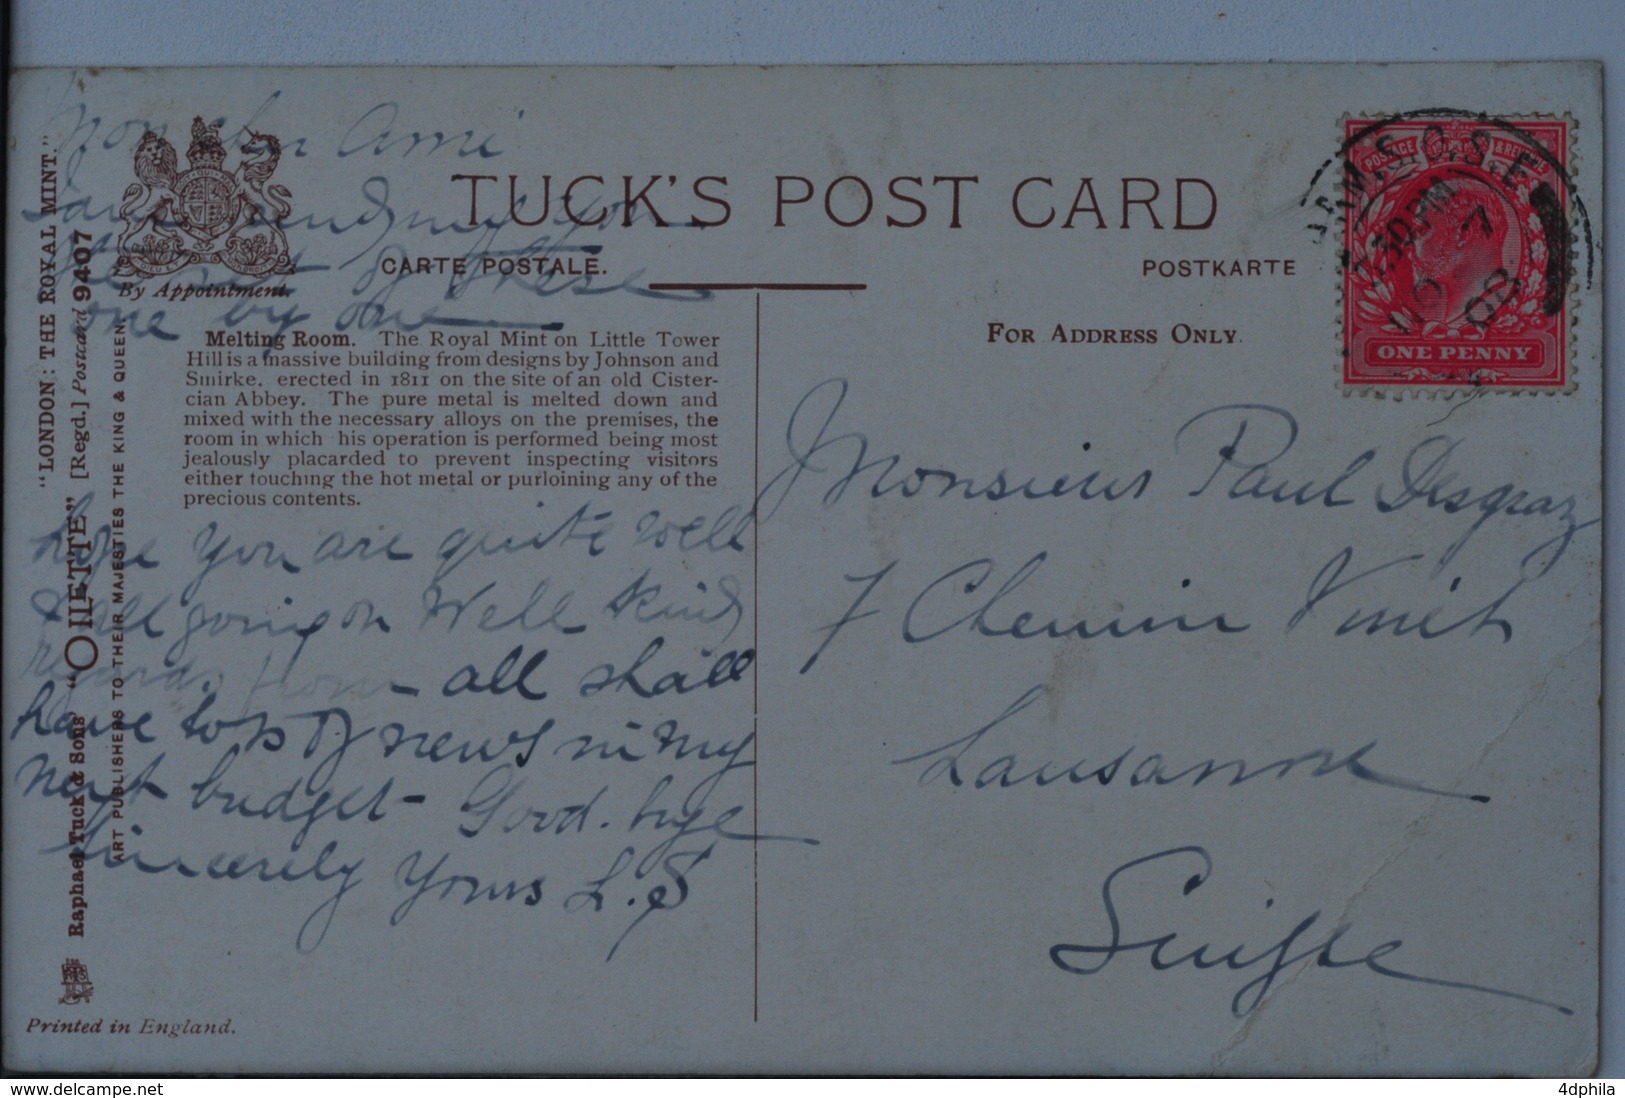 Mon cher Ami
I am sending you
the rest of these
one by one
TUCK'S POST CARD
CARTE POSTALE.
POSTKARTE
By Appointment.
FOR ADDRESS ONLY.
Melting Room. The Royal Mint on Little Tower
Hill is a massive building from designs by Johnson and
Smirke, erected in 1811 on the site of an old Cister-
cian Abbey. The pure metal is melted down and
mixed with the necessary alloys on the premises, the
room in which his operation is performed being most
jealously placarded to prevent inspecting visitors
either touching the hot metal or purloining any of the
precious contents.
hope you are quite well
& all going on Well Kind
regards from all shall
have lots of news in my
next budget - Good-bye
Sincerely Yours L.S
"LONDON: THE ROYAL MINT."
Raphael Tuck & Sons' "OILETTE" [Regd.] Postcard 9407
ART PUBLISHERS TO THEIR MAJESTIES THE KING & QUEEN.
Printed in England.
POSTAGE & REVENUE
ONE PENNY
M.S.O. S.E
.30PM
7
NO
08
Monsieur Paul Desgraz
7 Chemin Vinet
Lausanne
Suisse
4dphila